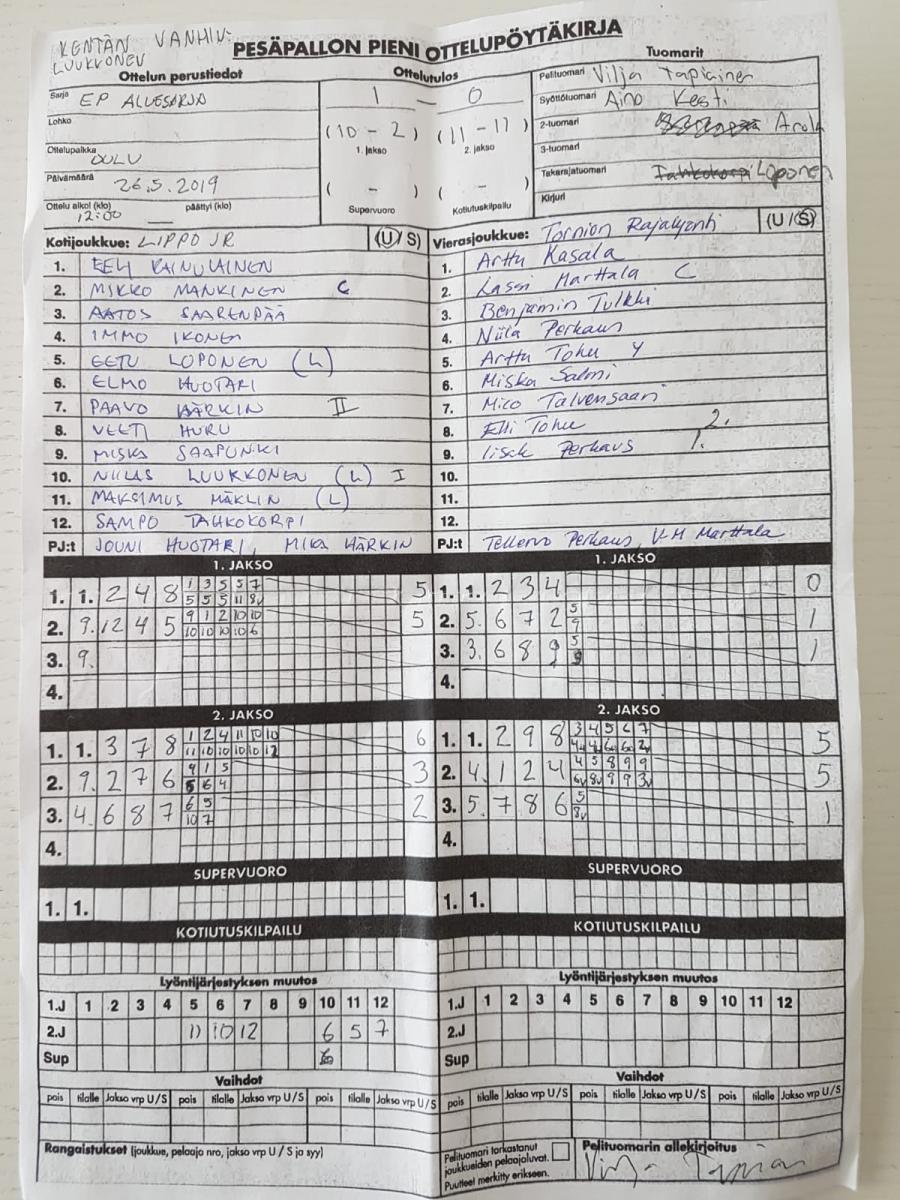 KENTÄN VANHIN:
LUUKKONEN
PESÄPALLON PIENI OTTELUPÖYTÄKIRJA
Ottelun perustiedot
Sarja EP ALUESARJA
Lohko
Ottelupaikka OULU
Päivämäärä 26.5.2019
Ottelu alkoi (klo) 12:00 päättyi (klo)
Ottelutulos
1 – 0
(10 – 2) (11 – 11)
1. jakso 2. jakso
( – ) ( – )
Supervuoro Kotiutuskilpailu
Tuomarit
Pelituomari Vilja Tapiainen
Syöttötuomari Aino Kesti
2-tuomari Arola
3-tuomari
Takarajatuomari Tahkokorpi Loponen
Kirjuri
Kotijoukkue: LIPPO JR (U/S)
1. EELI KAINULAINEN
2. MIKKO MANKINEN C
3. AATOS SAARENPÄÄ
4. IMMO IKONEN
5. EETU LOPONEN (L)
6. ELMO HUOTARI
7. PAAVO HÄRKIN II
8. VEETI HURU
9. MISKA SAAPUNKI
10. NIILAS LUUKKONEN (L) I
11. MAKSIMUS MÄKLIN (L)
12. SAMPO TAHKOKORPI
PJ:t JOUNI HUOTARI, MIKA HÄRKIN
Vierasjoukkue: Tornion Rajalyönti (U/S)
1. Arttu Kasala
2. Lassi Marttala C
3. Benjamin Tulkki
4. Niila Perkaus
5. Arttu Tohu Y
6. Miska Salmi
7. Mico Talvensaari
8. Elli Tohu 2.
9. Iisak Perkaus 1.
10.
11.
12.
PJ:t Tellervo Perkaus, V-M Marttala
1. JAKSO
1. 1. 2 4 8 1 3 5 5 7 5
5 5 5 11 8v
2. 9. 12 4 5 9 1 2 10 10 5
10 10 10 10 6
3. 9.
4.
1. JAKSO
1. 1. 2 3 4 0
2. 5. 6 7 2 5 1
9
3. 3. 6 8 9 5 1
9
4.
2. JAKSO
1. 1. 3 7 8 1 2 4 11 10 10 6
11 10 10 10 10 12
2. 9. 2 7 6 9 1 5 3
5 6 4
3. 4. 6 8 7 6 5 2
10 7
4.
2. JAKSO
1. 1. 2 9 8 3 4 5 6 7 5
4v 4v 6v 6v 2v
2. 4. 1 2 4 4 5 8 9 9 5
6v 8v 9 9 3v
3. 5. 7 8 6 5 1
8v
4.
SUPERVUORO
1. 1.
SUPERVUORO
1. 1.
KOTIUTUSKILPAILU
KOTIUTUSKILPAILU
Lyöntijärjestyksen muutos
1.J 1 2 3 4 5 6 7 8 9 10 11 12
2.J 11 10 12 6 5 7
Sup
Lyöntijärjestyksen muutos
1.J 1 2 3 4 5 6 7 8 9 10 11 12
2.J
Sup
Vaihdot
pois tilalle Jakso vrp U/S pois tilalle Jakso vrp U/S pois tilalle Jakso vrp U/S
Vaihdot
pois tilalle Jakso vrp U/S pois tilalle Jakso vrp U/S pois tilalle Jakso vrp U/S
Rangaistukset (joukkue, pelaaja nro, jakso vrp U / S ja syy)
Pelituomari tarkastanut
joukkueiden pelaajaluvat.
Puutteet merkitty erikseen.
Pelituomarin allekirjoitus